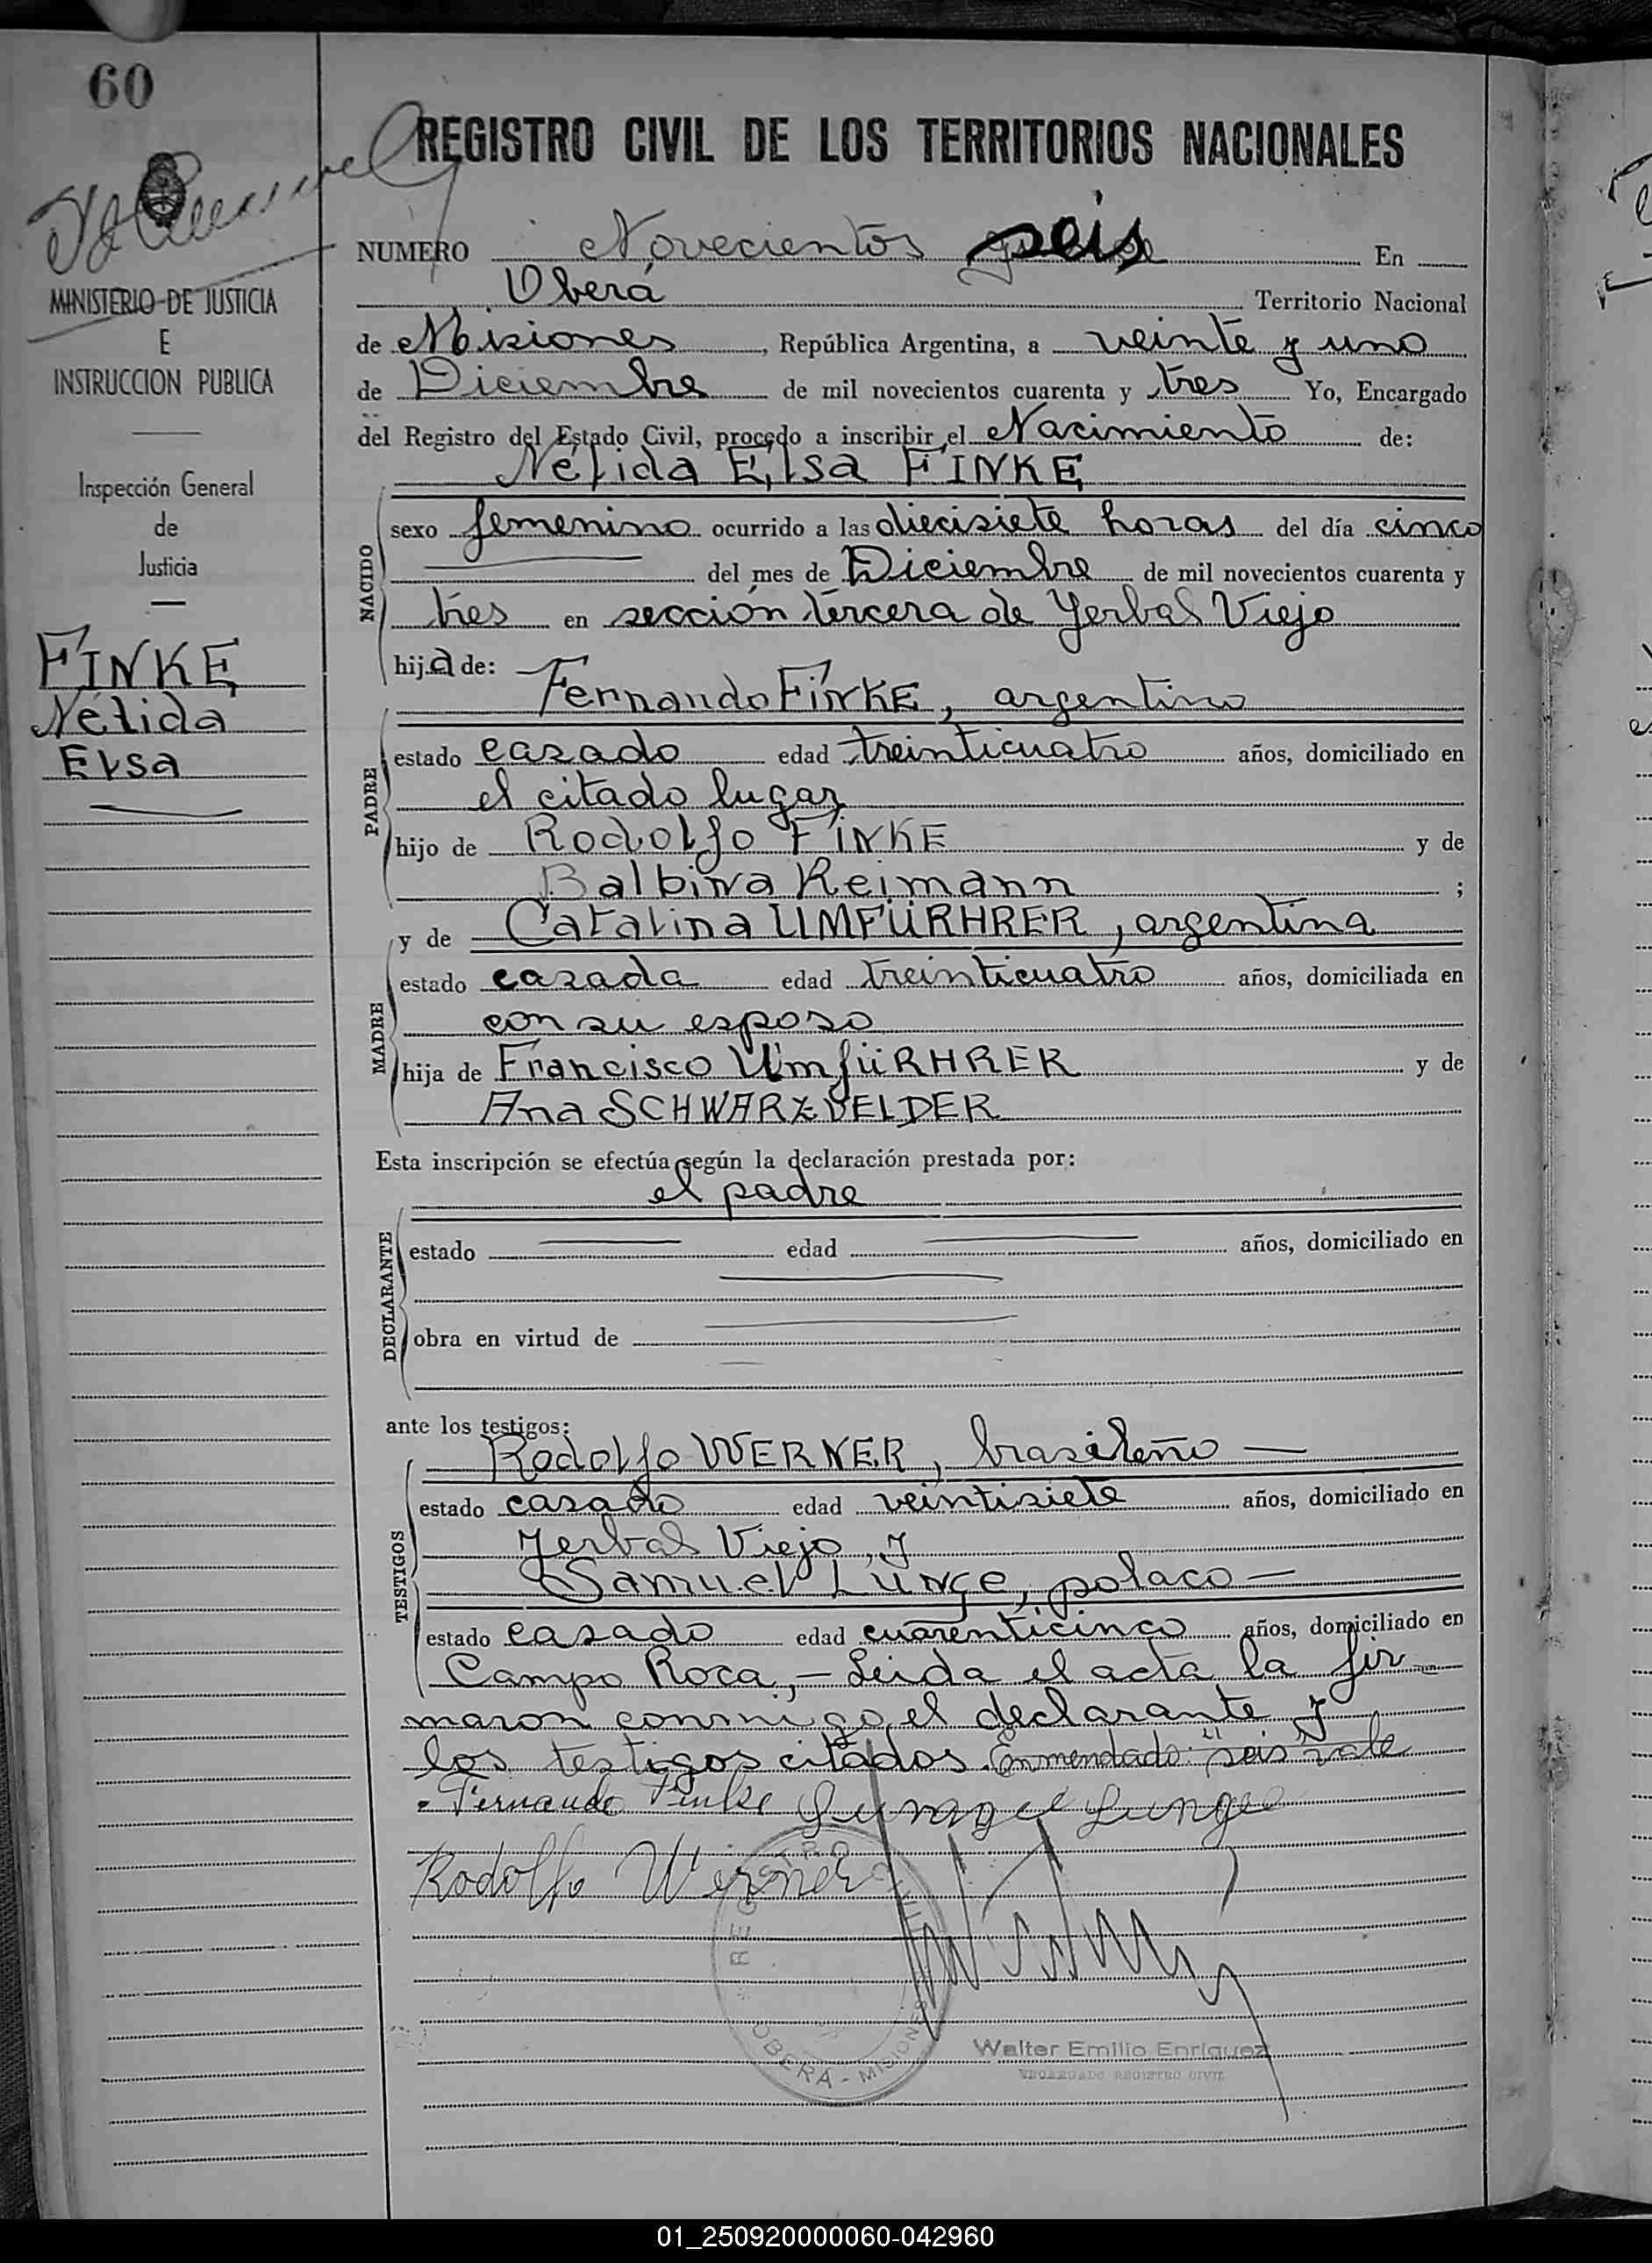 60
REGISTRO CIVIL DE LOS TERRITORIOS NACIONALES
NUMERO Novecientos seis En
Oberá Territorio Nacional
MINISTERIO DE JUSTICIA
E
INSTRUCCION PUBLICA
de Misiones, República Argentina, a veinte y uno
de Diciembre de mil novecientos cuarenta y tres Yo, Encargado
del Registro del Estado Civil, procedo a inscribir el Nacimiento de:
Nélida Elsa FINKE
Inspección General
de
Justicia
FINKE
Nélida
Elsa
NACIDO
sexo femenino ocurrido a las diecisiete horas del día cinco
del mes de Diciembre de mil novecientos cuarenta y
tres en sección tercera de Yerbal Viejo
hija de:
Fernando FINKE, argentino
PADRE
estado casado edad treinticuatro años, domiciliado en
el citado lugar
hijo de Rodolfo FINKE y de
Balbina Reimann ;
y de Catalina UMFÜRHRER, argentina
MADRE
estado casada edad treinticuatro años, domiciliada en
con su esposo
hija de Francisco UmfüRHRER y de
Ana SCHWARZBELDER
Esta inscripción se efectúa según la declaración prestada por:
el padre
DECLARANTE
estado edad años, domiciliado en
obra en virtud de
ante los testigos:
Rodolfo WERNER, brasileño —
TESTIGOS
estado casado edad veintisiete años, domiciliado en
Yerbal Viejo, y
Samuel LUNGE, polaco —
estado casado edad cuarenticinco años, domiciliado en
Campo Roca, — Leida el acta la fir
maron conmigo, el declarante y
los testigos citados. Enmendado: "seis" vale
Fernando Finke Lunge
Rodolfo Werner
REG
OBERÁ - MISIONES
Walter Emilio Enriquez
ENCARGADO REGISTRO CIVIL
01_250920000060-042960